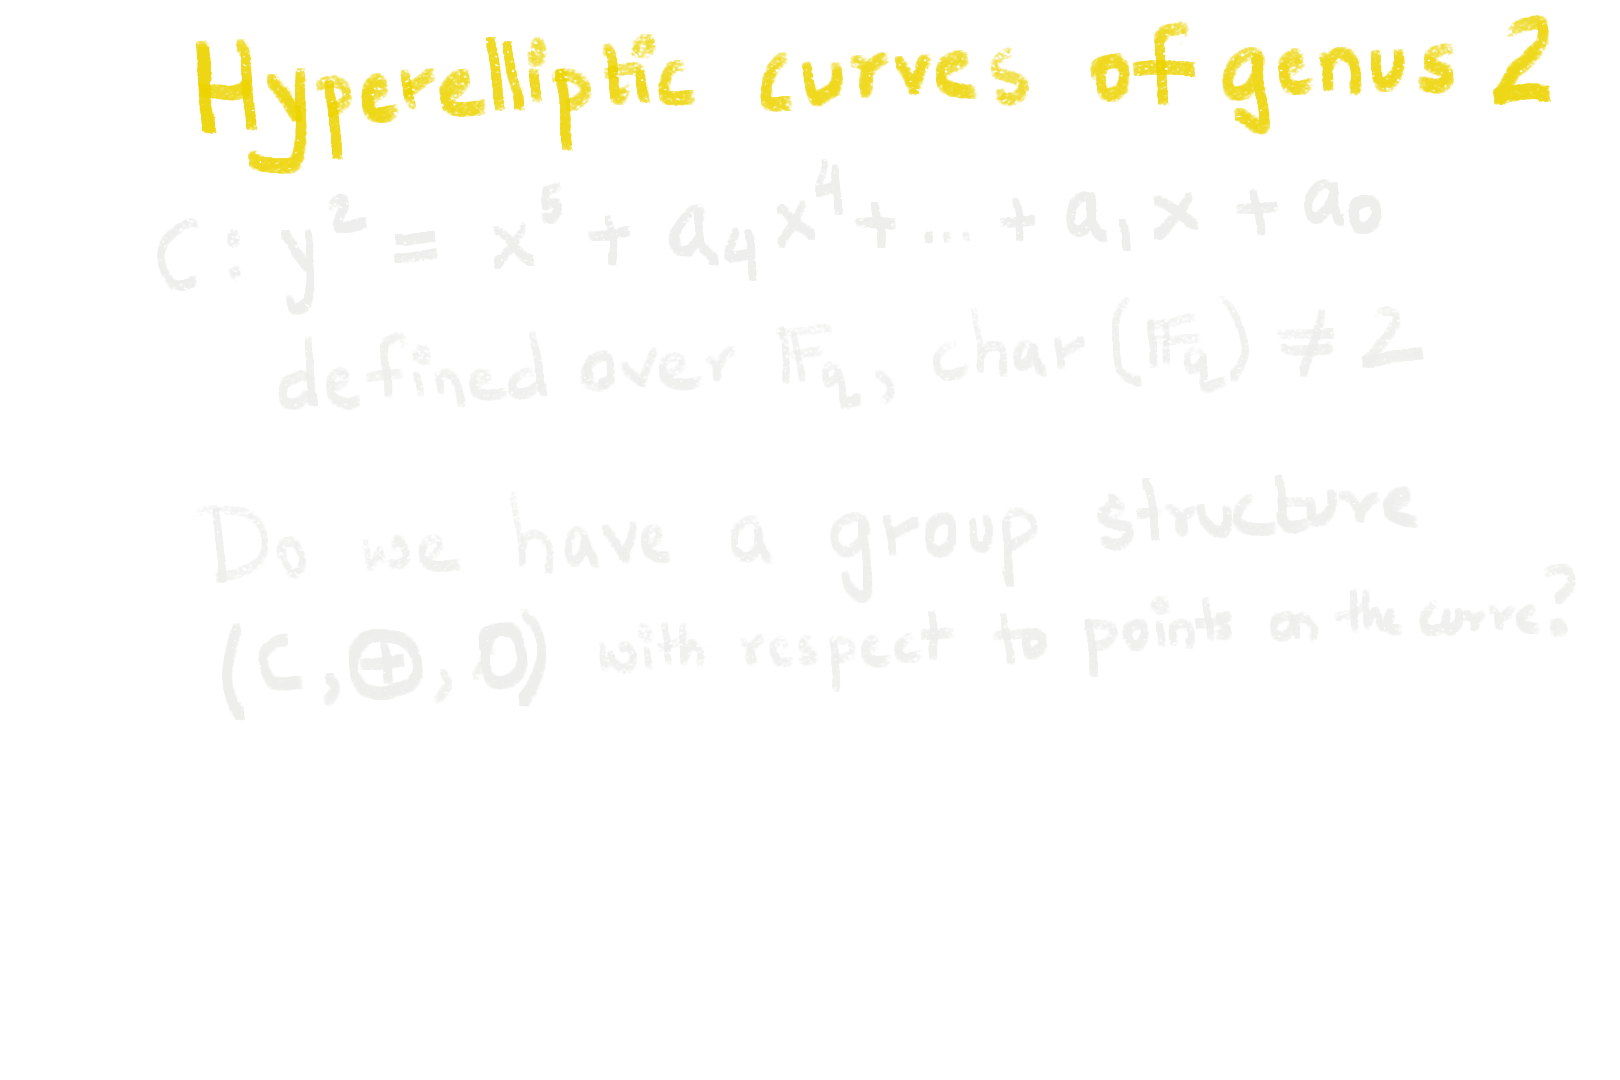 Hyperelliptic curves of genus 2
C: y² = x⁵ + a₄x⁴ + ... + a₁x + a₀
defined over 𝔽q, char(𝔽q) ≠ 2
Do we have a group structure
(C, ⊕, 0) with respect to points on the curve?